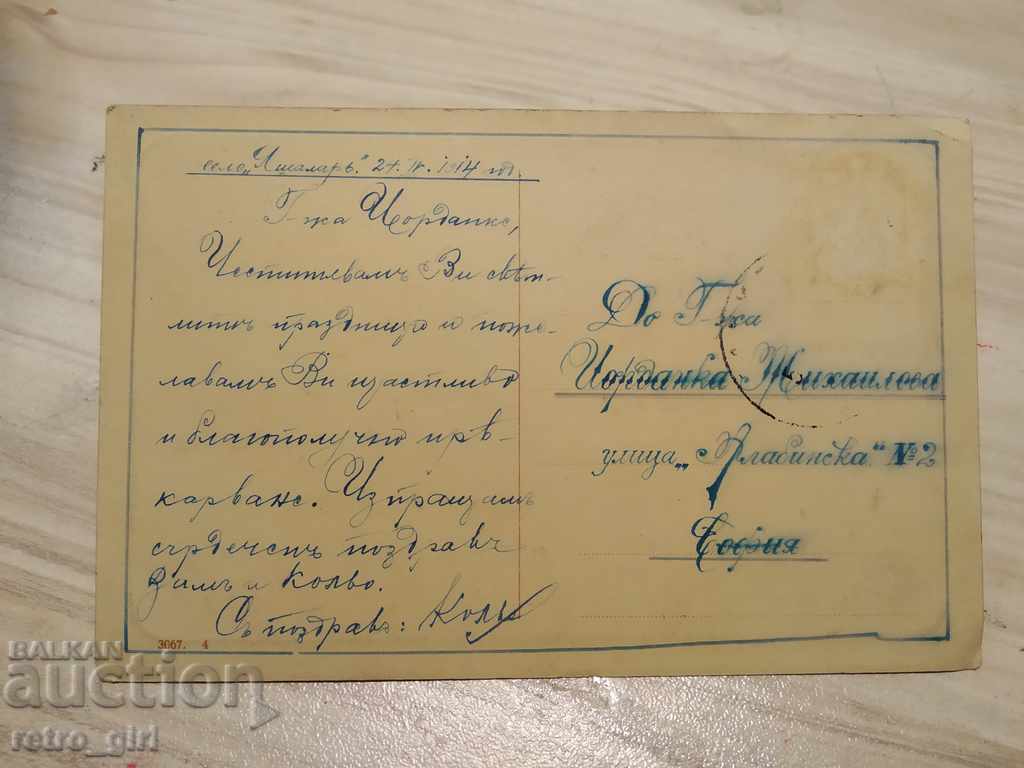 село „Яшаларъ". 24. IV. 1914 год.
Г-жа Йорданке,
Честитявамъ Ви свѣт-
литѣ праздници и поже-
лавамъ Ви щастливо
и благополучно прѣ-
карване. Изпращамъ
сърдеченъ поздравъ
и Кольо.
Съ поздравъ: Кольо
До Г-жа
Йорданка Михаилова
улица „Алабинска" №2
София
3067. 4
BALKAN
auction
retro_girl